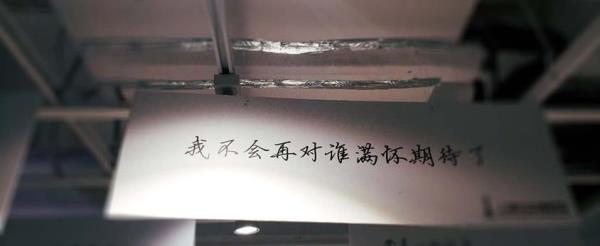 我不会再对谁满怀期待了